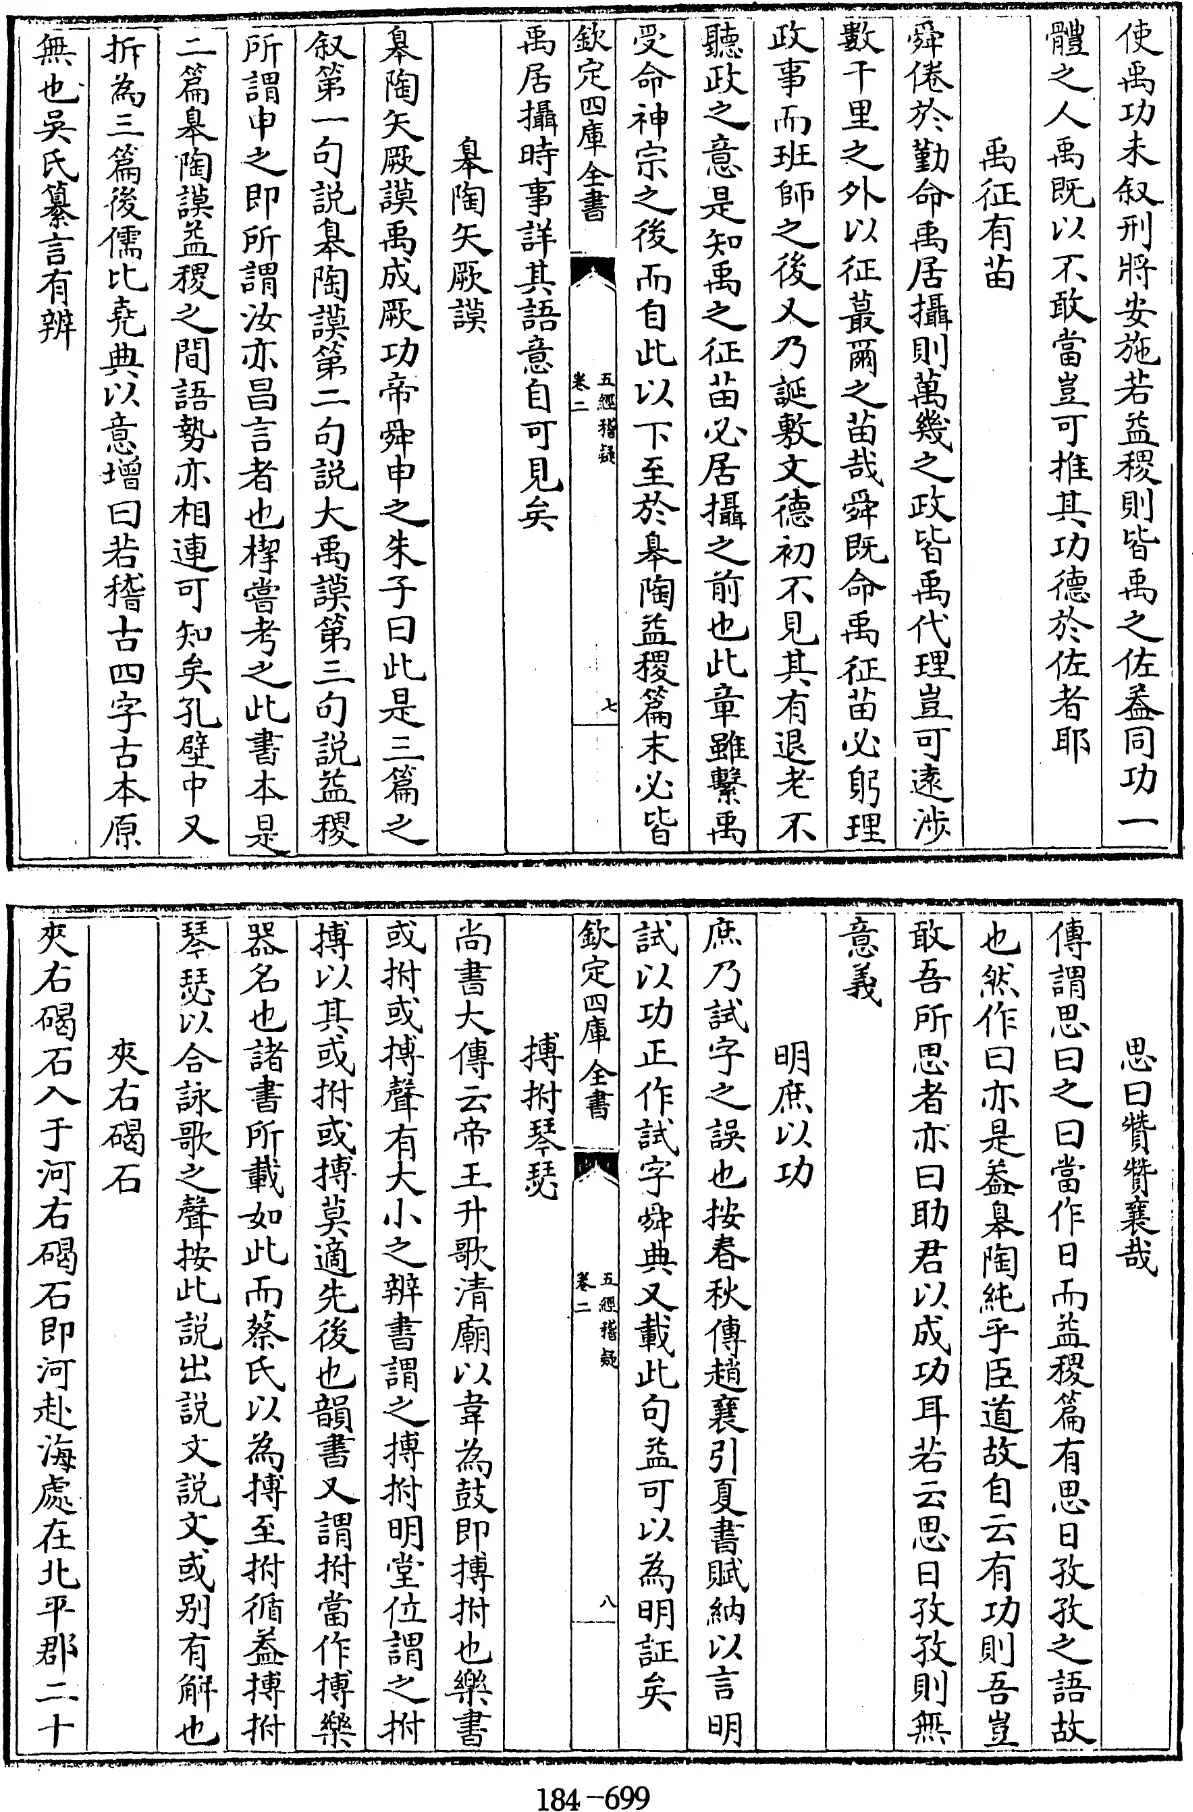 使禹功未叙刑將安施若益稷則皆禹之佐葢同功一
體之人禹既以不敢當豈可推其功德於佐者耶
禹征有苗
舜倦於勤命禹居攝則萬幾之政皆禹代理豈可逺涉
數千里之外以征蕞爾之苗哉舜既命禹征苗必躬理
政事而班師之後又乃誕敷文德初不見其有退老不
聽政之意是知禹之征苗必居攝之前也此章雖繫禹
受命神宗之後而自此以下至於皋陶益稷篇末必皆
欽定四庫全書
五經稽疑
卷二
七
禹居攝時事詳其語意自可見矣
皋陶矢厥謨
皋陶矢厥謨禹成厥功帝舜申之朱子曰此是三篇之
叙第一句說皋陶謨第二句說大禹謨第三句說益稷
所謂申之即所謂汝亦昌言者也㮮嘗考之此書本是
二篇皋陶謨益稷之間語勢亦相連可知矣孔壁中又
拆為三篇後儒比堯典以意增曰若稽古四字古本原
無也吳氏纂言有辨
思曰贊贊襄哉
傳謂思曰之曰當作日而益稷篇有思日孜孜之語故
也然作曰亦是葢皋陶純乎臣道故自云有功則吾豈
敢吾所思者亦曰助君以成功耳若云思日孜孜則無
意義
明庶以功
庶乃試字之誤也按春秋傳趙襄引夏書賦納以言明
試以功正作試字舜典又載此句益可以為明証矣
欽定四庫全書
五經稽疑
卷二
八
搏拊琴瑟
尚書大傳云帝王升歌清廟以韋為鼓即搏拊也樂書
或拊或搏聲有大小之辨書謂之搏拊明堂位謂之拊
搏以其或拊或搏莫適先後也韻書又謂拊當作搏樂
器名也諸書所載如此而蔡氏以為搏至拊循葢搏拊
琴瑟以合詠歌之聲按此說出說文說文或别有解也
夾右碣石
夾右碣石入于河右碣石即河赴海處在北平郡二十
184-699